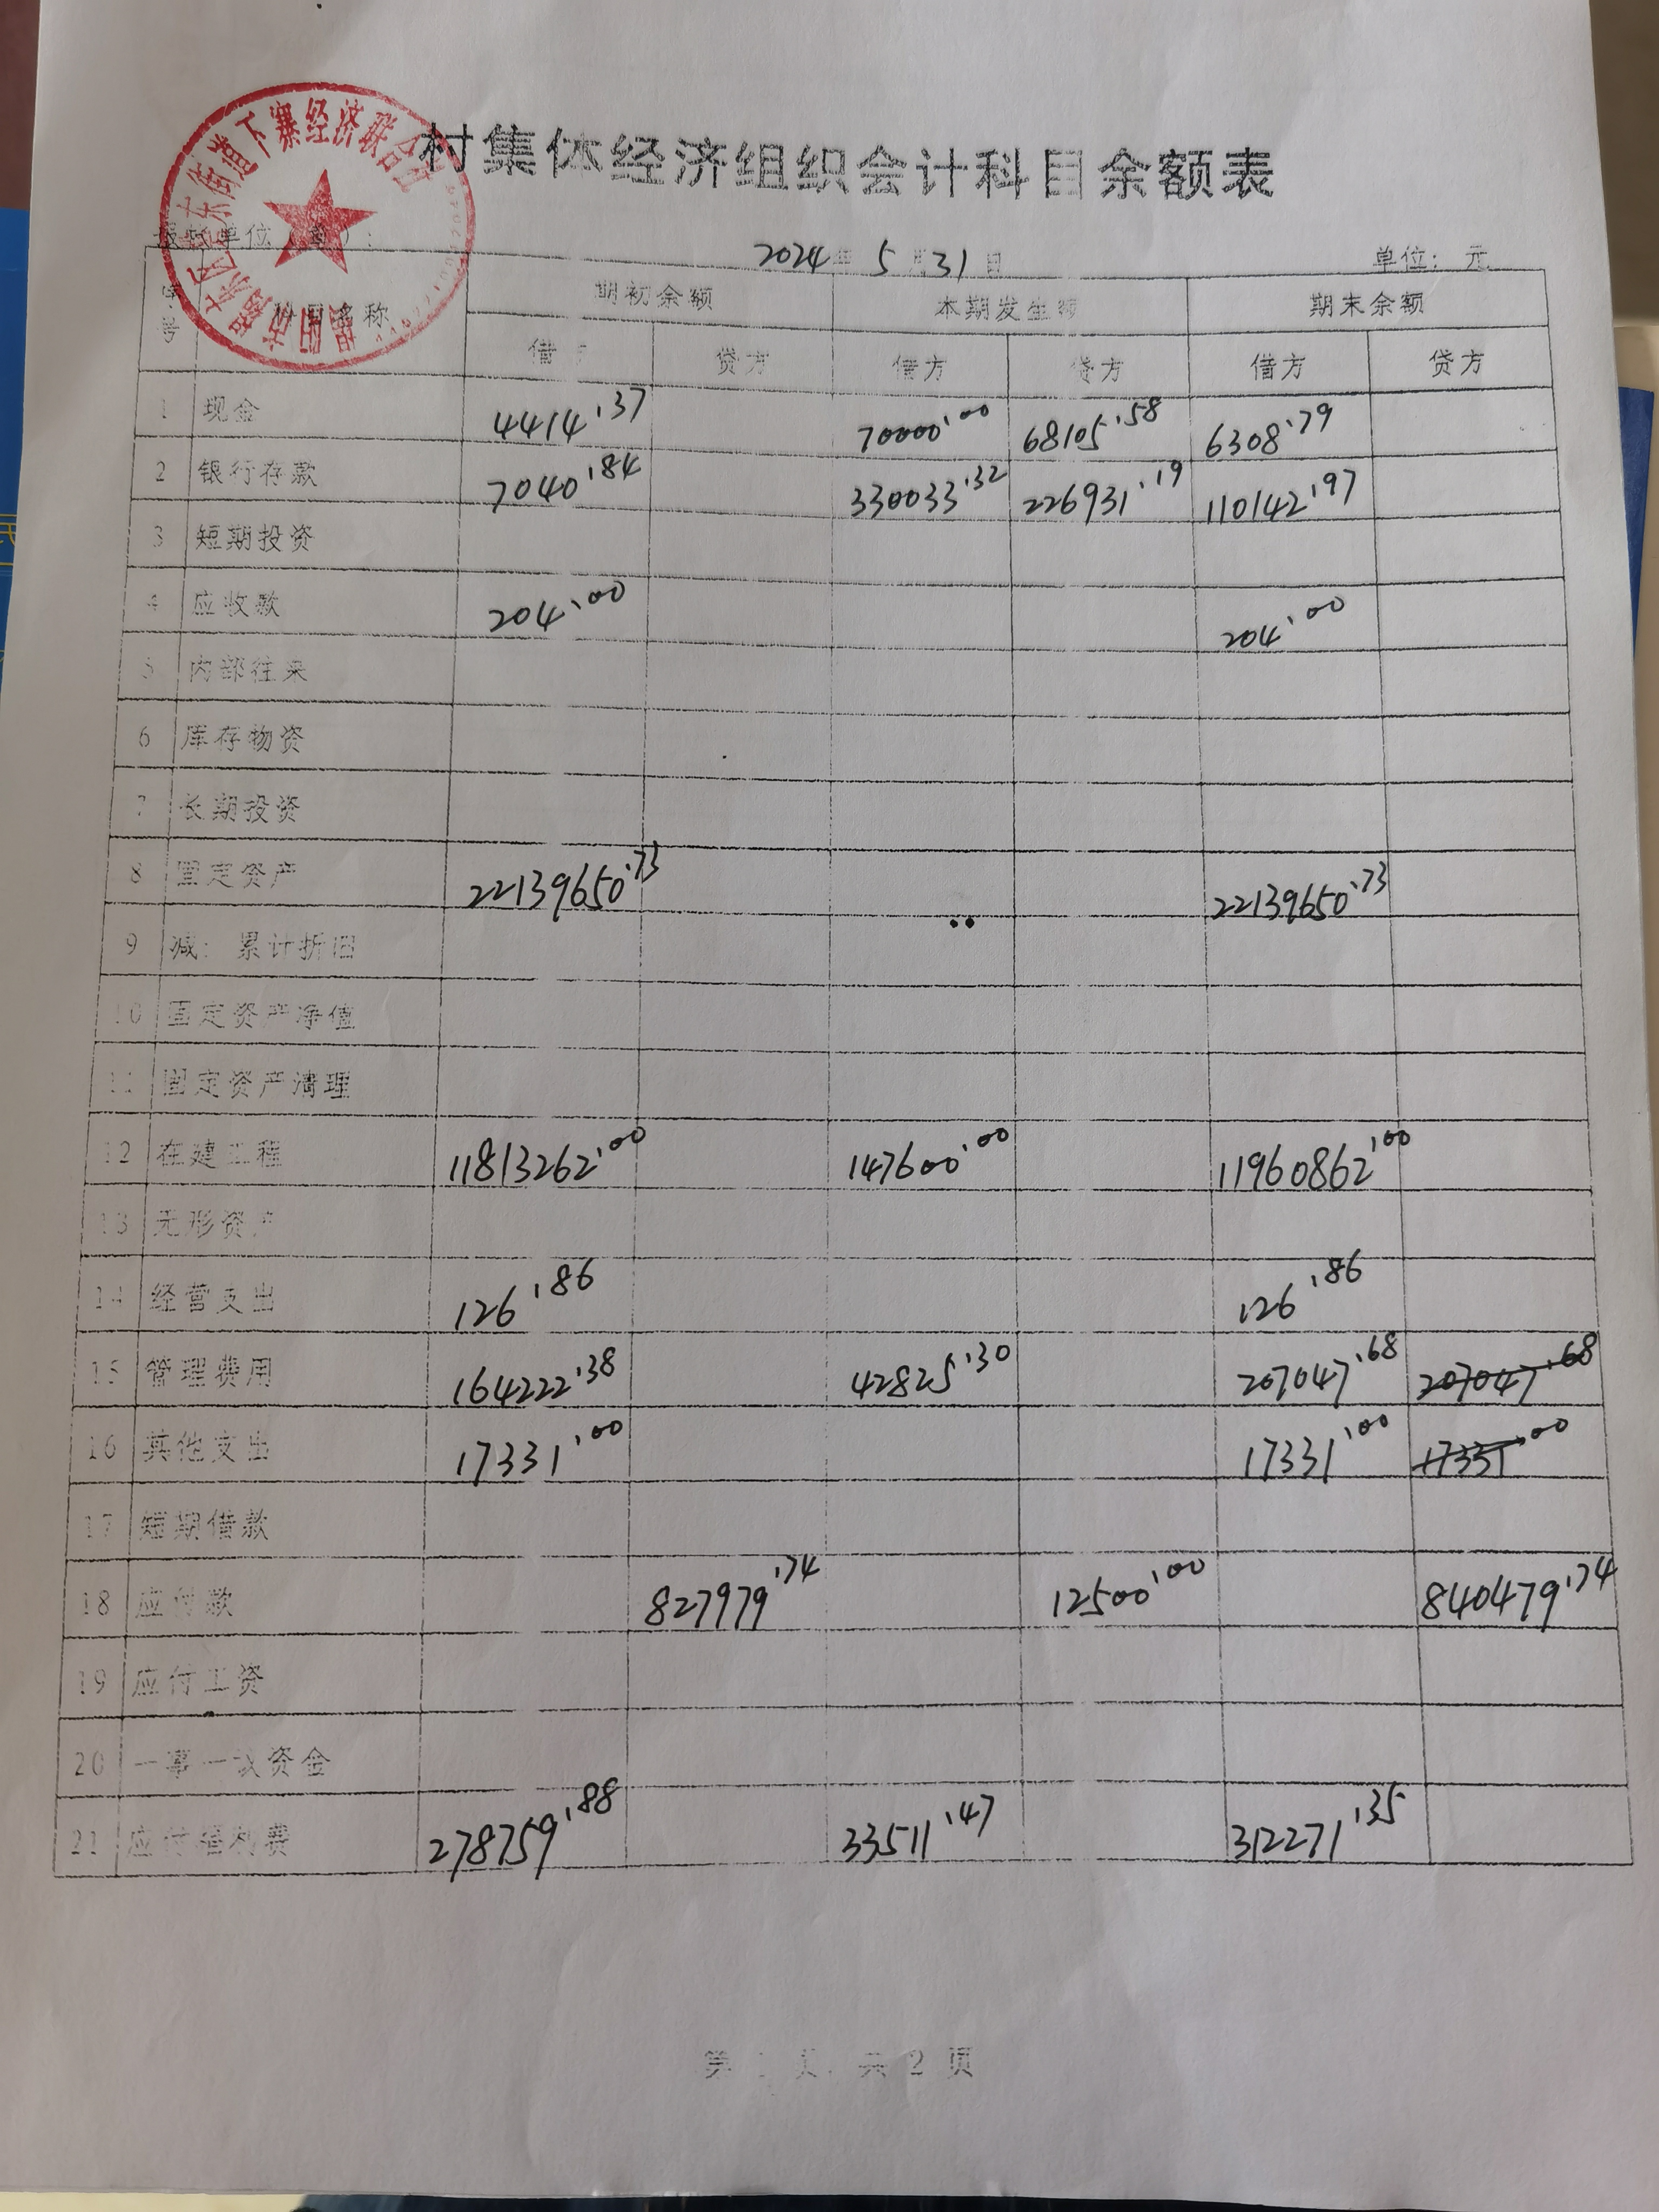 村集体经济组织会计科目余额表
下寨经济联合
单位
2024年5月31日 单位：元
序号 科目名称 期初余额 本期发生额 期末余额
借方 贷方 借方 贷方 借方 贷方
1 现金 4414.37 70000.00 68105.58 6308.79
2 银行存款 7040.84 330033.32 226931.19 110142.97
3 短期投资
4 应收款 204.00 204.00
5 内部往来
6 库存物资
7 长期投资
8 固定资产 22139650.73 22139650.73
9 减：累计折旧
10 固定资产净值
11 固定资产清理
12 在建工程 11813262.00 147600.00 11960862.00
13 无形资产
14 经营支出 126.86 126.86
15 管理费用 164222.38 42825.30 207047.68 207047.68
16 其他支出 17331.00 17331.00 17331.00
17 短期借款
18 应付款 827979.74 12500.00 840479.74
19 应付工资
20 一事一议资金
21 应付福利费 278759.88 33511.47 312271.35
第1页，共2页